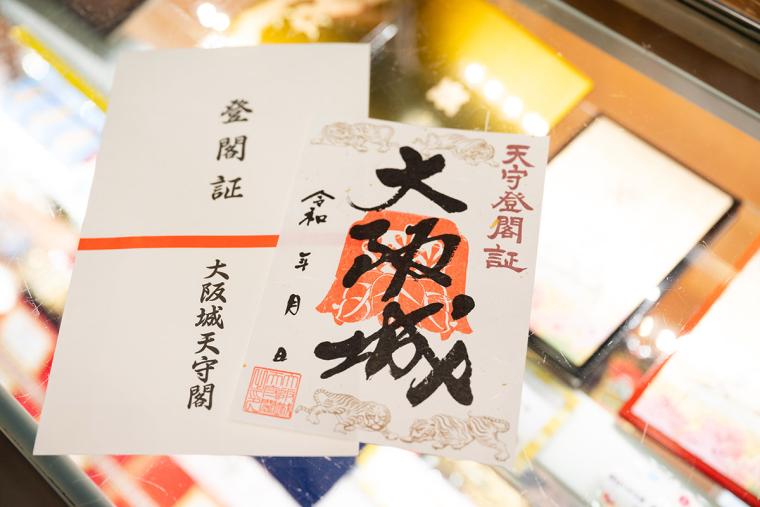 登閣証
大阪城天守閣
天守登閣証
大阪城
令和 年 月 日